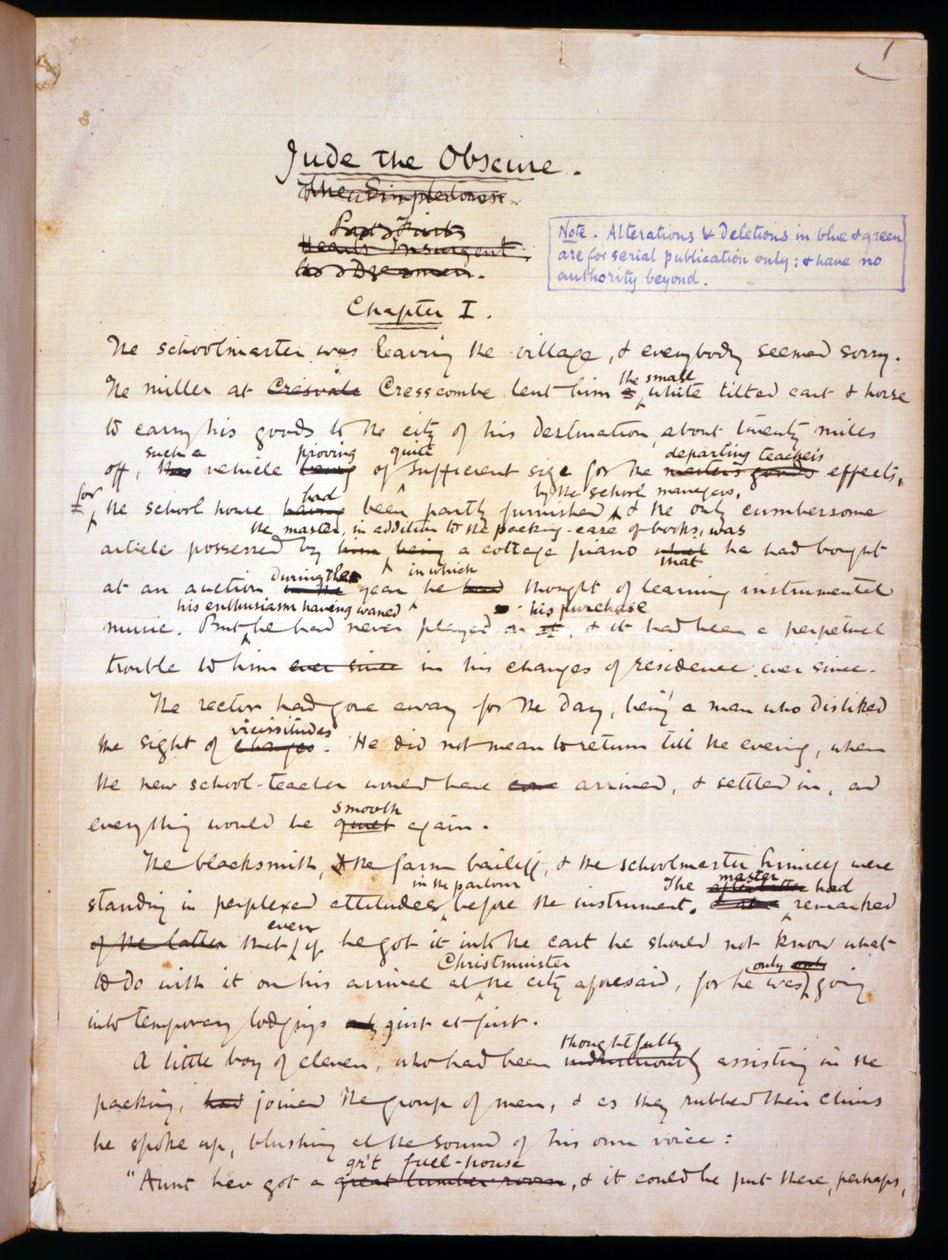 1
Jude the Obscure.
The Simpletons
Hearts Insurgent.
Chapter I.
Note. Alterations & deletions in blue & green
are for serial publication only: & have no
authority beyond.
The schoolmaster was leaving the village, & everybody seemed sorry.
the small
The miller at Cresvale Cresscombe lent him a white tilted cart & horse
to carry his goods to the city of his destination, about twenty miles
such a proving quite departing teacher's
off, this vehicle being of sufficient size for the master's goods effects,
for had by the school managers,
the school house having been partly furnished, & the only cumbersome
the master, in addition to the packing-case of books, was
article possessed by him being a cottage piano which he had bought
that
During the in which
at an auction in the year he had thought of learning instrumental
his enthusiasm having waned his purchase
music. But he had never played on it, & it had been a perpetual
trouble to him ever since in his changes of residence ever since.
The rector had gone away for the day, being a man who disliked
vicissitudes
the sight of changes. He did not mean to return till the evening, when
the new school-teacher would have come arrived, & settled in, and
smooth
everything would be quiet again.
The blacksmith, & the farm bailiff, & the schoolmaster himself were
in the parlour The master had
standing in perplexed attitudes before the instrument. remarked
even
of the latter that if he got it into the cart he should not know what
Christminster only only
to do with it on his arrival at the city aforesaid, for he was going
into temporary lodgings only just at first.
thoughtfully
A little boy of eleven, who had been assisting in the
packing, had joined the group of men, & as they rubbed their chins
he spoke up, blushing at the sound of his own voice:
gr't fuel-house
"Aunt hev got a great lumber-room, & it could be put there, perhaps,